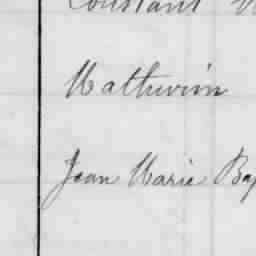 Constant
Mathurin
Jean Marie Bap